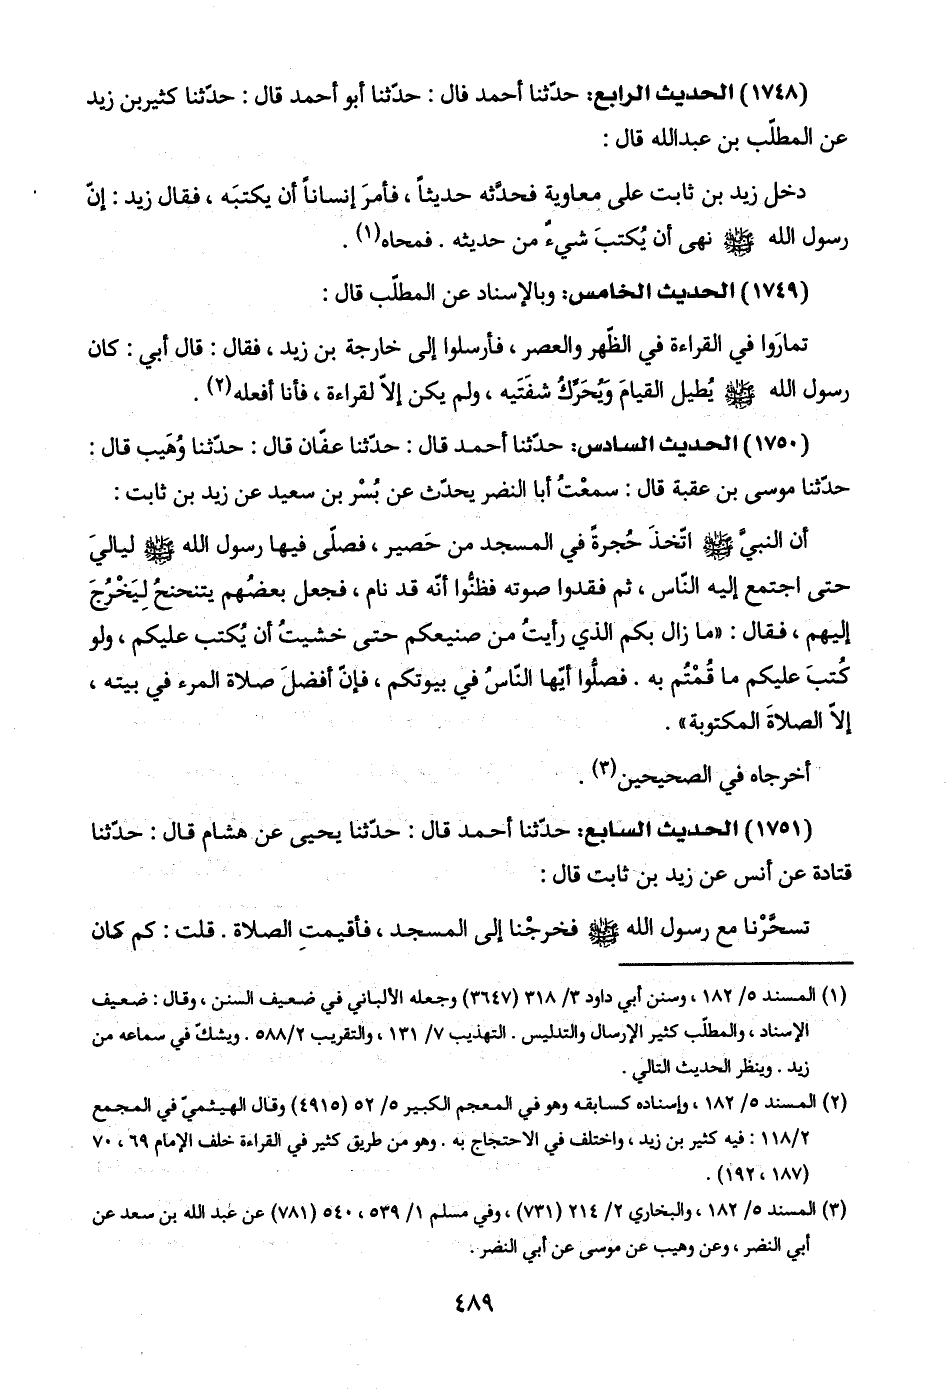 (١٧٤٨) الحديث الرابع: حدّثنا أحمد فال : حدّثنا أبو أحمد قال : حدّثنا كثيربن زيد
عن المطلّب بن عبدالله قال :
دخل زيد بن ثابت على معاوية فحدَّثه حديثاً ، فأمرَ إنساناً أن يكتبَه ، فقال زيد : إنّ
رسول الله ﷺ نهى أن يُكتبَ شيءٌ من حديثه . فمحاه(١) .
(١٧٤٩) الحديث الخامس: وبالإسناد عن المطلّب قال :
تمارَوا في القراءة في الظّهر والعصر ، فأرسلوا إلى خارجة بن زيد ، فقال : قال أبي : كان
رسول الله ﷺ يُطيل القيامَ وَيُحَرِّكُ شفَتَيه ، ولم يكن إلاّ لقراءة ، فأنا أفعله(٢) .
(١٧٥٠) الحديث السادس: حدّثنا أحمد قال : حدّثنا عفّان قال : حدّثنا وُهَيب قال :
حدّثنا موسى بن عقبة قال : سمعْتُ أبا النضر يحدّث عن بُسْر بن سعيد عن زيد بن ثابت :
أن النبيَّ ﷺ اتّخذَ حُجرةً في المسجد من حَصير ، فصلّى فيها رسول الله ﷺ لياليَ
حتى اجتمع إليه النّاس ، ثم فقدوا صوته فظنُّوا أنّه قد نام ، فجعل بعضُهم يتنحنحُ لِيَخْرُجَ
إليهم ، فقال : «ما زال بكم الذي رأيتُ من صنيعكم حتى خشيتُ أن يُكتب عليكم ، ولو
كُتبَ عليكم ما قُمْتُم به . فصلُّوا أيّها النّاسُ في بيوتكم ، فإنّ أفضلَ صلاة المرء في بيته ،
إلاّ الصلاةَ المكتوبة» .
أخرجاه في الصحيحين(٣) .
(١٧٥١) الحديث السابع: حدّثنا أحمد قال : حدّثنا يحيى عن هشام قال : حدّثنا
قتادة عن أنس عن زيد بن ثابت قال :
تسحَّرْنا مع رسول الله ﷺ فخرجْنا إلى المسجد ، فأقيمت الصلاة . قلت : كم كان
(١) المسند ٥/ ١٨٢ ، وسنن أبي داود ٣/ ٣١٨ (٣٦٤٧) وجعله الألباني في ضعيف السنن ، وقال : ضعيف
الإسناد ، والمطلّب كثير الإرسال والتدليس . التهذيب ٧/ ١٣١ ، والتقريب ٥٨٨/٢ . ويشكّ في سماعه من
زيد . وينظر الحديث التالي .
(٢) المسند ٥/ ١٨٢ ، وإسناده كسابقه وهو في المعجم الكبير ٥/ ٥٢ (٤٩١٥) وقال الهيثميّ في المجمع
١١٨/٢ : فيه كثير بن زيد ، واختلف في الاحتجاج به . وهو من طريق كثير في القراءة خلف الإمام ٦٩ ، ٧٠
(١٨٧ ، ١٩٢) .
(٣) المسند ٥/ ١٨٢ ، والبخاري ٢/ ٢١٤ (٧٣١) ، وفي مسلم ١/ ٥٣٩ ، ٥٤٠ (٧٨١) عن عبد الله بن سعد عن
أبي النضر ، وعن وهيب عن موسى عن أبي النضر .
٤٨٩